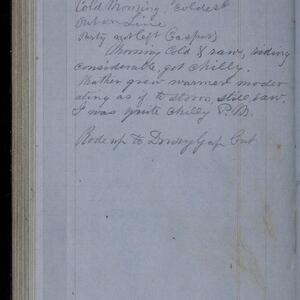 Cold Morning, "coldest
Out on Line
Party out left Caspers
Morning Cold & raw, riding
considerable, got chilly.
Weather grew warmer moder
ating as if to storm, still raw.
I was quite chilly P.M.
Rode up to Gap Out